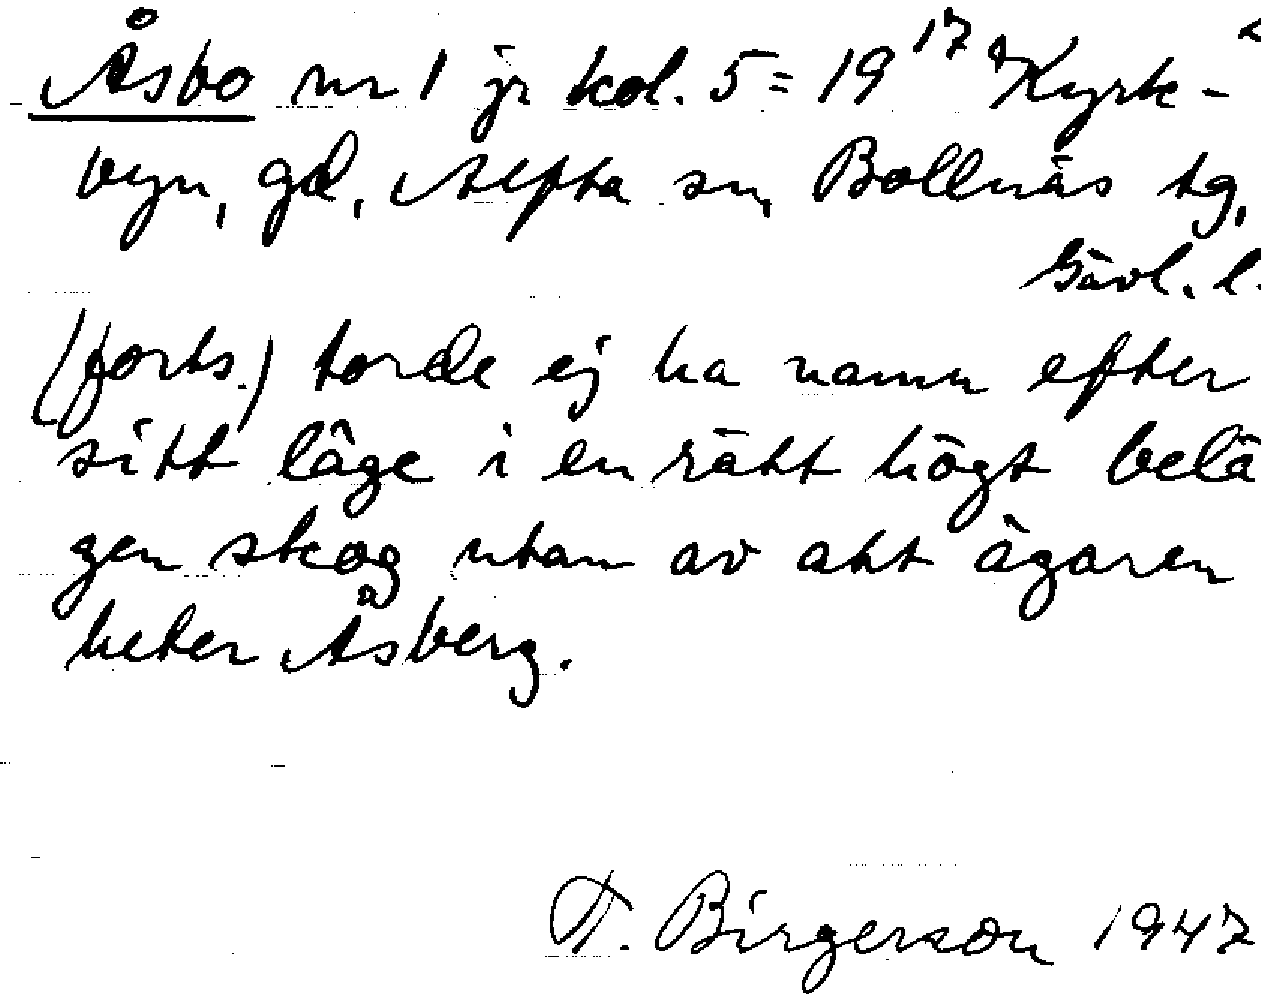 Åsbo nr 1 jr kol. 5 = 19 17 Kyrk- 2
byn, gd, Alfta sn, Bollnäs tg,
Gävl. l.
(forts.) torde ej ha namn efter
sitt läge i en rätt högt belä
gen skog utan av att ägaren
heter Åsberg.
T. Birgerson 1947